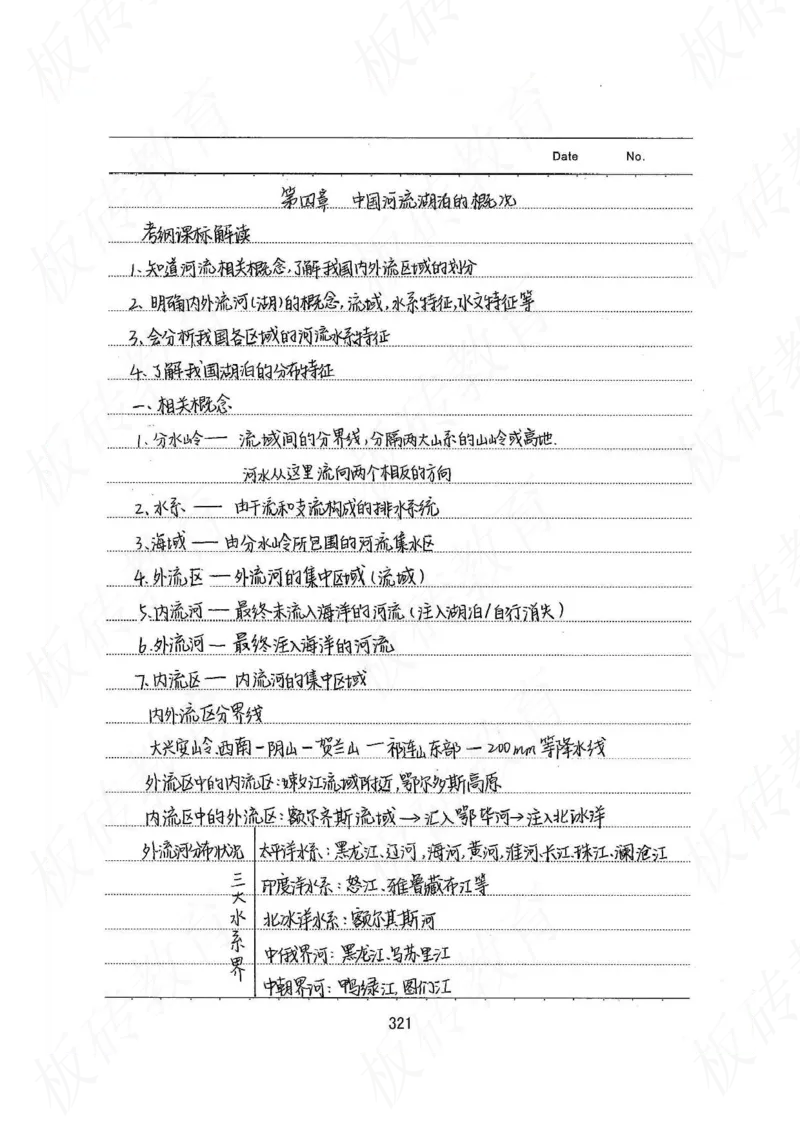 Date No.
第四章 中国河流湖泊的概况
考纲课标解读
1、知道河流相关概念,了解我国内外流区域的划分
2、明确内外流河(湖)的概念,流域,水系特征,水文特征等
3、会分析我国各区域的河流水系特征
4、了解我国湖泊的分布特征
一、相关概念
1、分水岭— 流域间的分界线,分隔两大山系的山岭或高地.
河水从这里流向两个相反的方向
2、水系 — 由干流和支流构成的排水系统
3、海域 — 由分水岭所包围的河流集水区
4.外流区 — 外流河的集中区域(流域)
5.内流河 — 最终未流入海洋的河流(注入湖泊/自行消失)
6.外流河 — 最终注入海洋的河流
7.内流区 — 内流河的集中区域
内外流区分界线
大兴安岭、西南-阴山-贺兰山 — 祁连山东部 — 200mm等降水线
外流区中的内流区:嫩江流域附近,鄂尔多斯高原
内流区中的外流区:额尔齐斯流域→汇入鄂毕河→注入北冰洋
外流河分布状况 太平洋水系:黑龙江、辽河,海河,黄河,淮河.长江.珠江、澜沧江
三大水系界
印度洋水系:怒江、雅鲁藏布江等
北冰洋水系:额尔其斯河
中俄界河:黑龙江、乌苏里江
中朝界河:鸭绿江,图们江
321
板砖教育